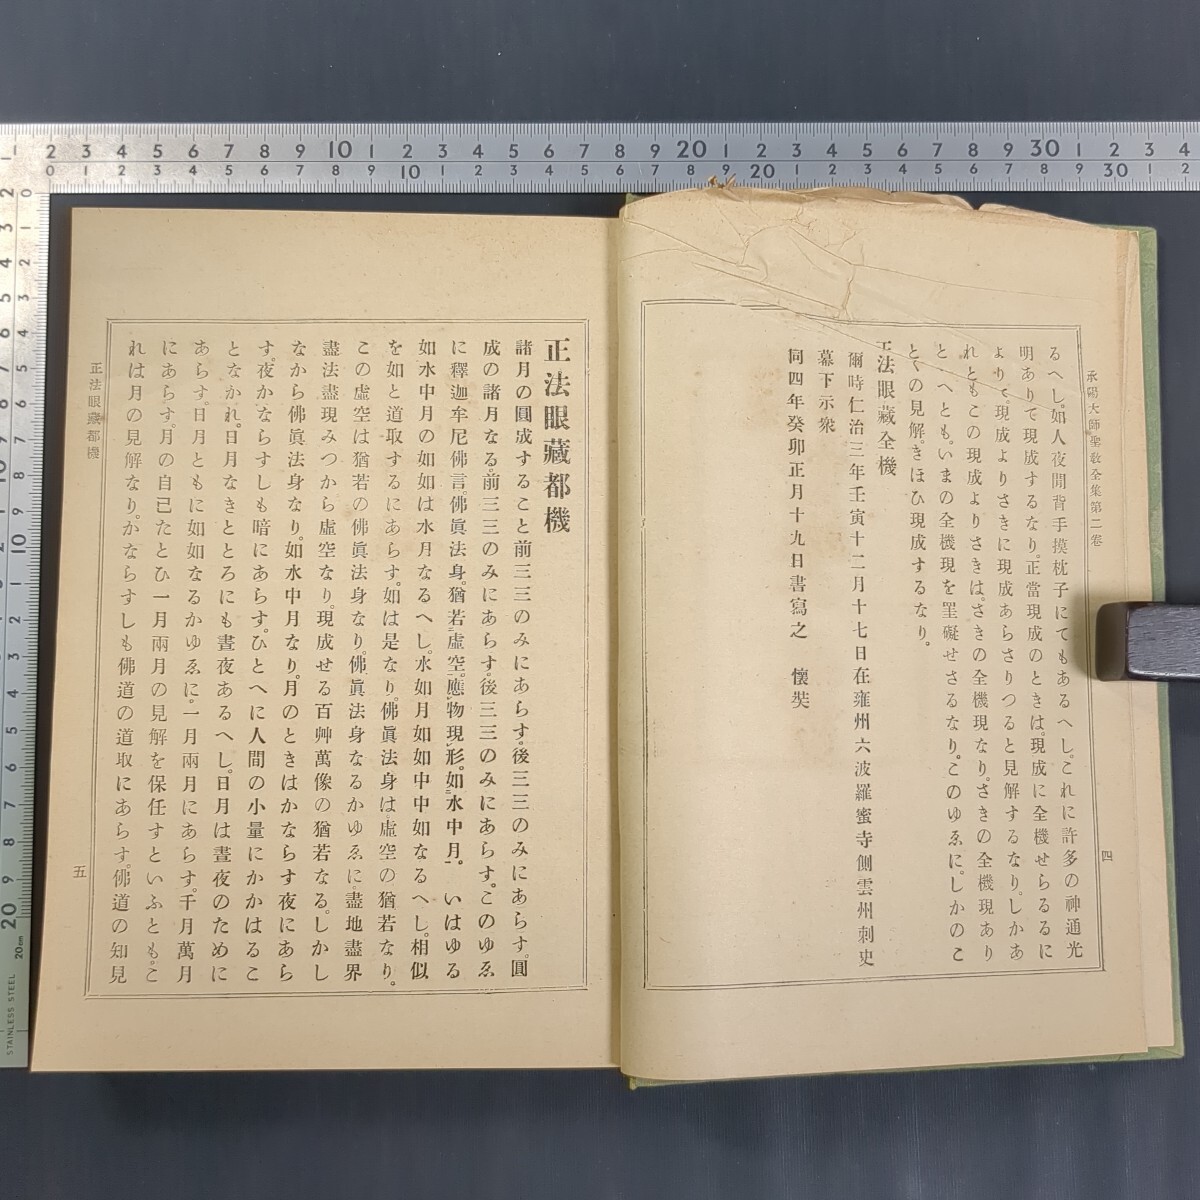 承陽大師聖敎全集第二卷
四
るへし。如人夜間背手摸枕子にてもあるへし。これに許多の神通光
明ありて現成するなり。正當現成のときは。現成に全機せらるるに
よりて。現成よりさきに現成あらさりつると見解するなり。しかあ
れともこの現成よりさきは。さきの全機現なり。さきの全機現あり
と、へとも。いまの全機現を罣礙せさるなり。このゆゑに。しかのこ
とくの見解。きほひ現成するなり。
正法眼藏全機
爾時仁治三年壬寅十二月十七日在雍州六波羅蜜寺側雲州刺史
幕下示衆
同四年癸卯正月十九日書寫之 懷奘
正法眼藏都機
諸月の圓成すること前三三のみにあらす。後三三のみにあらす。圓
成の諸月なる。前三三のみにあらす。後三三のみにあらす。このゆゑ
に釋迦牟尼佛言。佛眞法身。猶若虛空。應物現形。如水中月。 いはゆる
如水中月の如如は水月なるへし。水如月如如中中如なるへし。相似
を如と道取するにあらす。如は是なり。佛眞法身は虛空の猶若なり。
この虛空は猶若の佛眞法身なり。佛眞法身なるかゆゑに。盡地盡界
盡法盡現みつから虛空なり。現成せる百艸萬像の猶若なる。しかし
なから佛眞法身なり。如水中月なり。月のときはかならす夜にあら
す。夜かならすしも暗にあらす。ひとへに人間の小量にかかはるこ
となかれ。日月なきところにも晝夜あるへし。日月は晝夜のために
あらす。日月ともに如如なるかゆゑに。一月兩月にあらす。千月萬月
にあらす。月の自己たとひ一月兩月の見解を保任すといふとも。こ
れは月の見解なり。かならすしも佛道の道取にあらす。佛道の知見
正法眼藏都機
五
STAINLESS STEEL
20cm